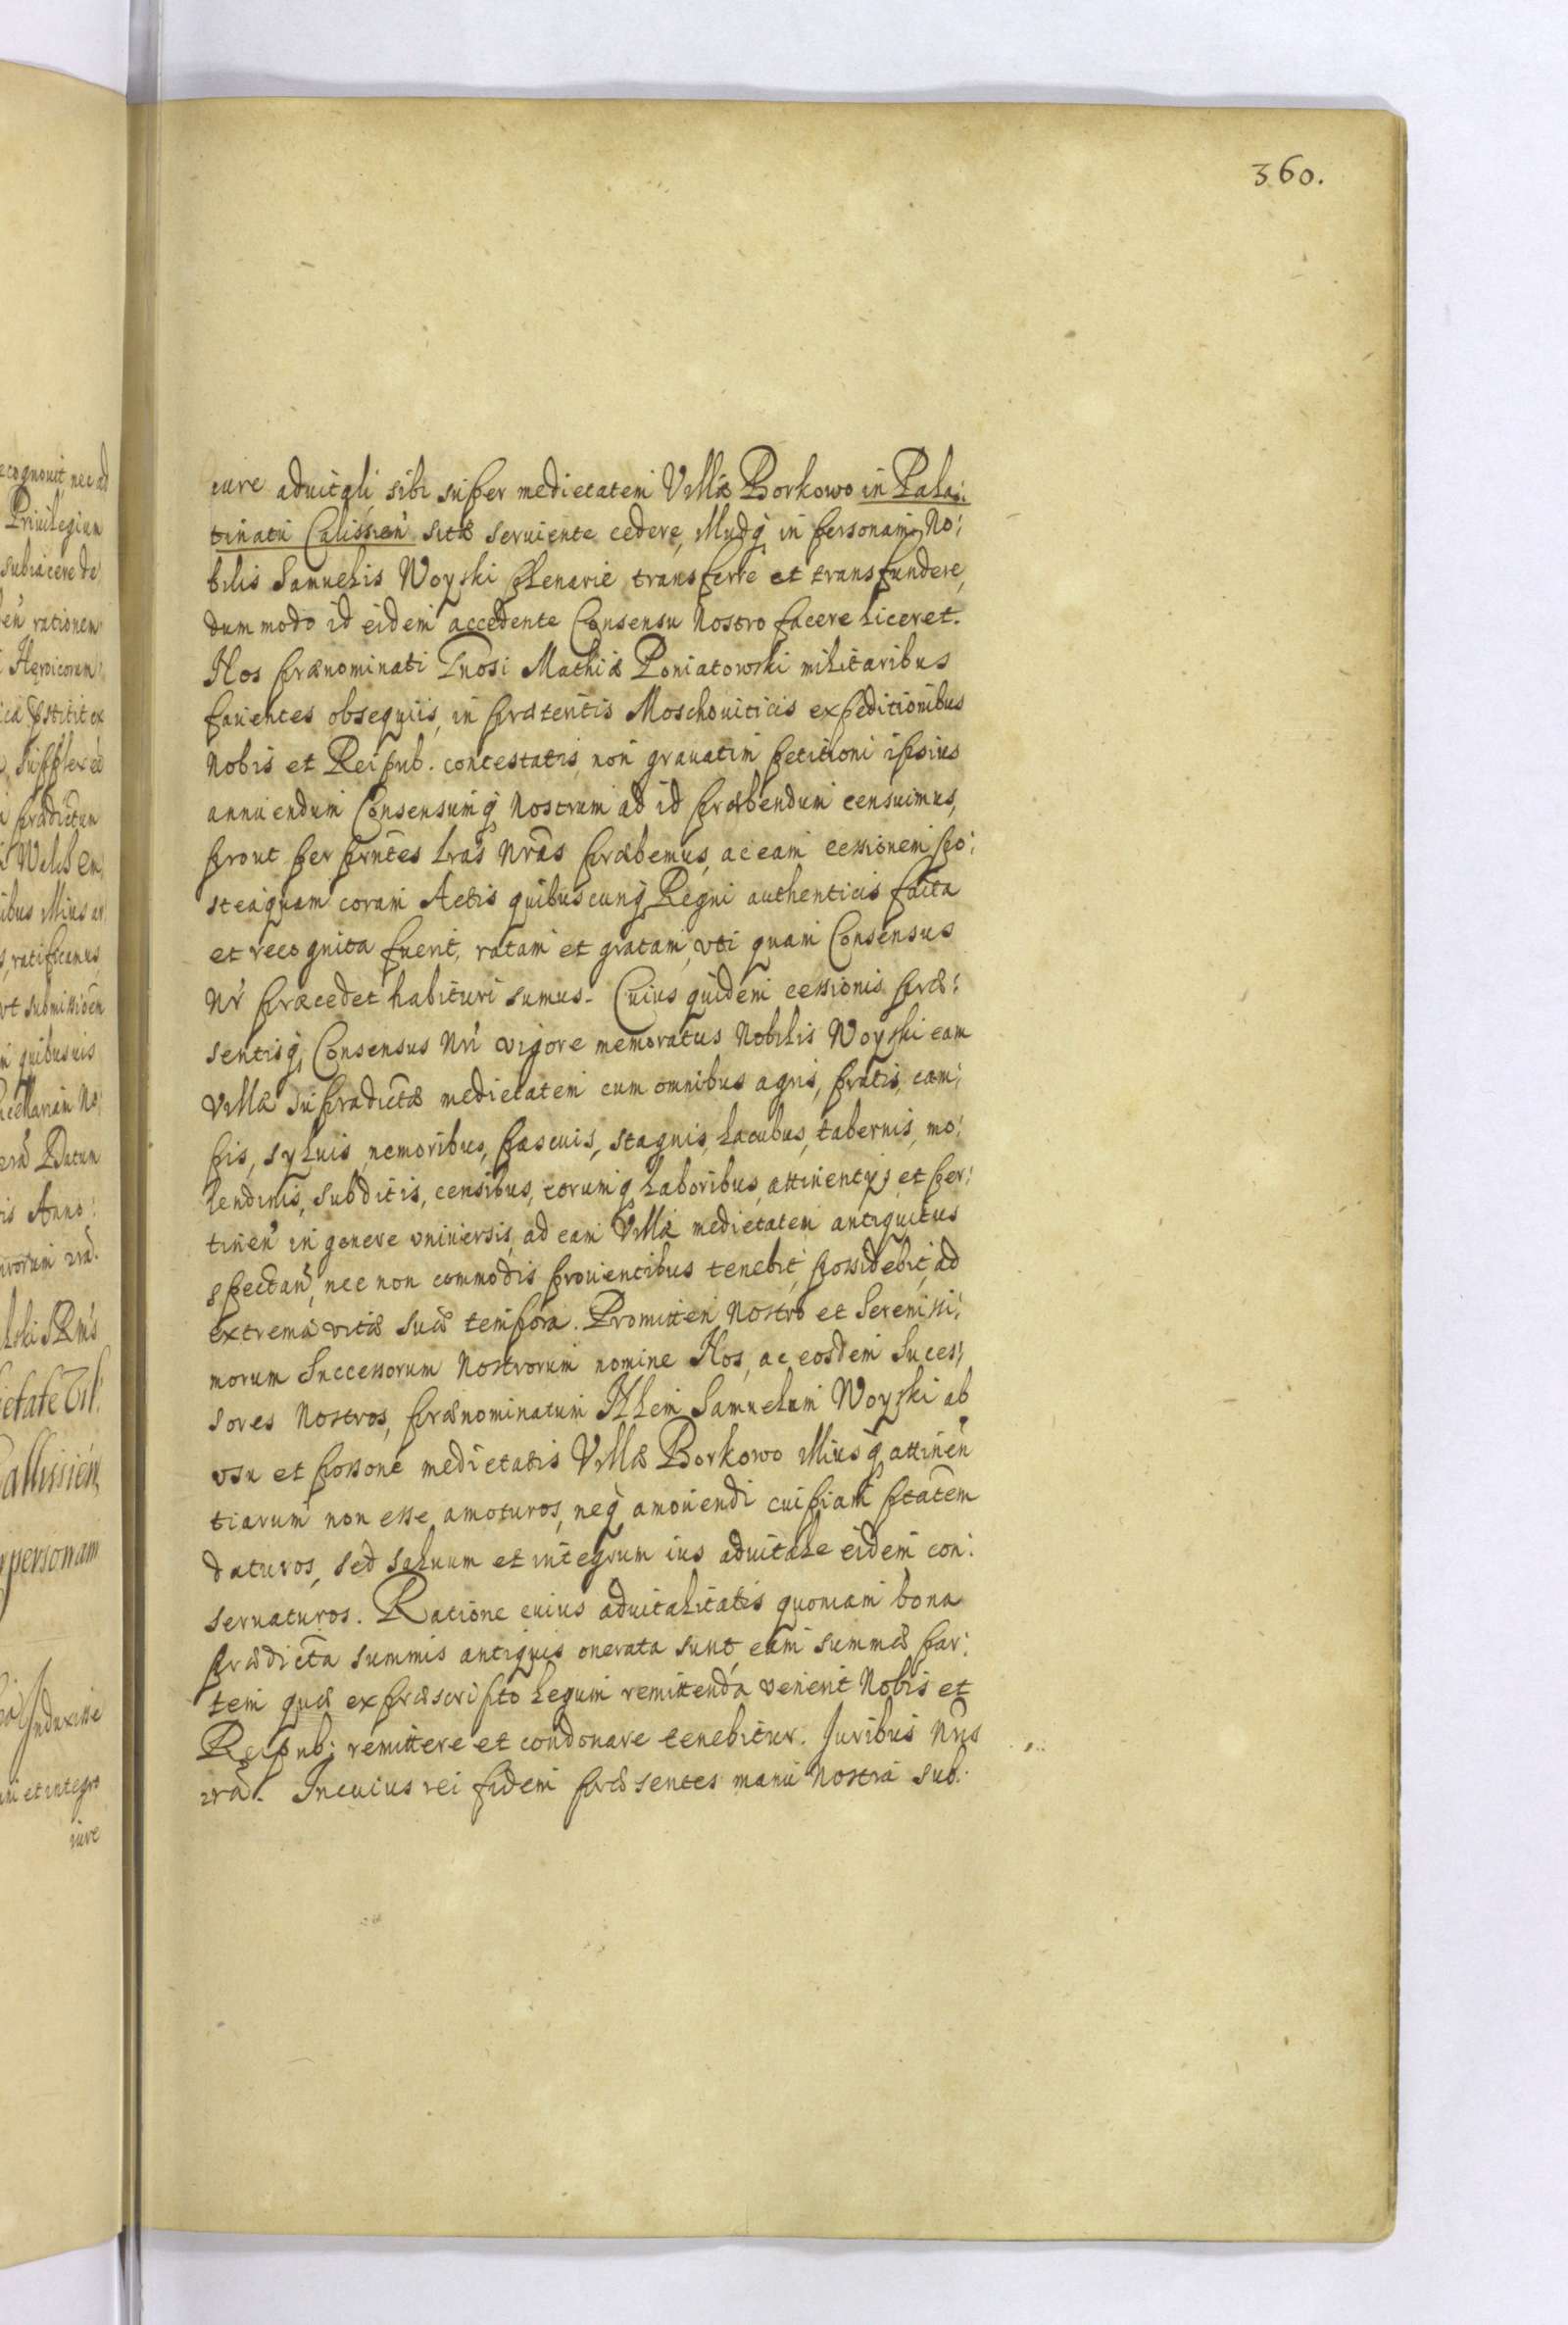 360.
iure aduitali sibi super medietatem Villæ Borkowo in Pala:
tinatu Calissień sitæ seruiente cedere, Illudq in personam No:
bilis Samuelis Woyski plenarie transferre et transfundere,
dummodo id eidem accedente Consensu Nostro facere liceret.
Nos prænominati Gnosi Mathiæ Poniatowski militaribus
fauentes obsequiis, in præteritis Moschouiticis expeditionibus
Nobis et Reipub. contestatis, non grauatim petitioni ipsius
annuendum Consensumq Nostrum ad id præbendum censuimus,
prout per prntes lras Nras præbemus, ac eam cessionem po:
steaquam coram Actis quibuscunq Regni authenticis facta
et recognita fuerit, ratam et gratam, vti quam Consensus
Nr præcedet habituri sumus. Cuius quidem cessionis præ:
sentisq Consensus Nri vigore memoratus Nobilis Woyski eam
Villæ supradictæ medietatem cum omnibus agris, pratis, cam:
pis, syluis, nemoribus, pascuis, stagnis, lacubus, tabernis, mo:
lendinis, subditis, censibus, eorumq laboribus, attinentys et per:
tineń in genere vniuersis, ad eam Villæ medietatem antiquitus
spectań, nec non commodis prouentibus tenebit, possidebit, ad
extrema vitæ suæ tempora. Promitten Nostro et Serenissi:
morum Successorum Nostrorum nomine Nos, ac eosdem Suces:
sores Nostros, prænominatum Nlem Samuelem Woyski ab
vsu et possone medietatis Villæ Borkowo Illiusq attineń
tiarum non esse amoturos, neq amouendi cuipiam ptatem
daturos, sed saluum et integrum ius aduitale eidem con:
seruaturos. Ratione cuius aduitalitatis quoniam bona
prædicta summis antiquis onerata sunt, eam summæ par:
tem quæ ex præscripto legum remittenda venerit Nobis et
Reipub: remittere et condonare tenebitur. Juribus Nris
Jn cuius rei fidem præsentes manu Nostra sub: